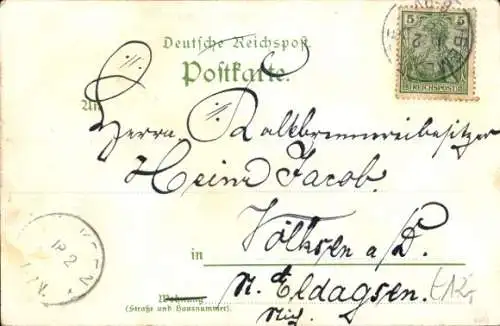 5 5
REICHSPOST
Deutsche Reichspost
Postkarte.
An
Herrn Kalkbrennereibesitzer
Heinr. Jacob.
Völksen a/D.
in
N. Eldagsen.
Wohnung
(Straße und Hausnummer)